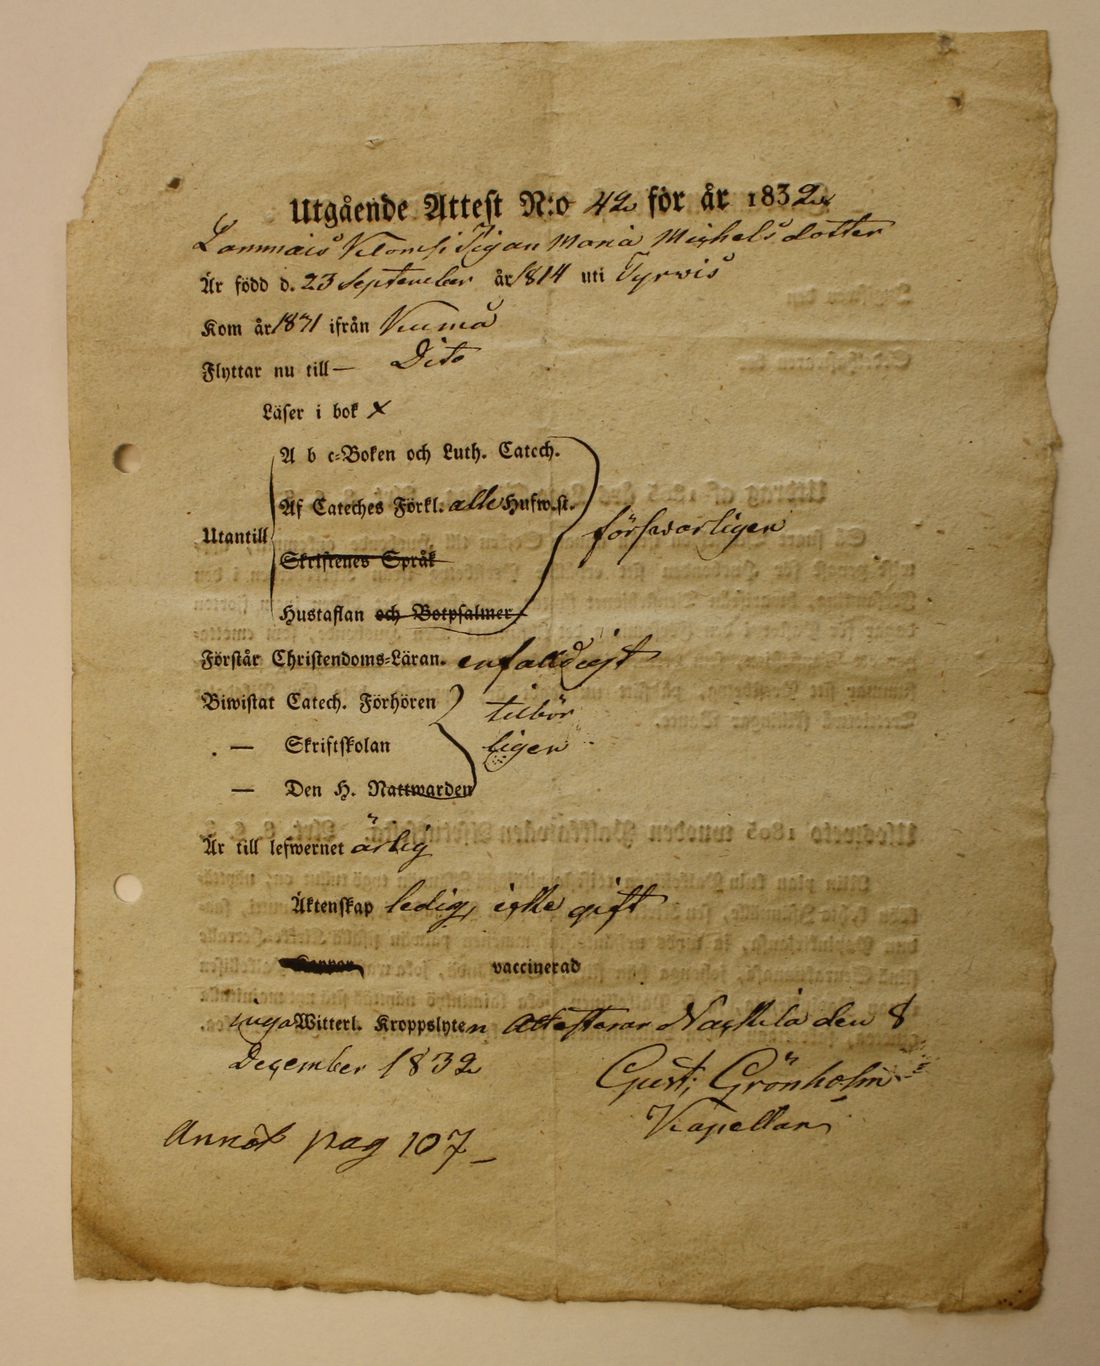 Utgående Attest N:o 42 för år 1832
Lammais Klomsi Pigan Maria Michelsdotter
Är född d. 23 September år 1814 uti Tyrwis
Kom år 1831 ifrån Kumå
Flyttar nu till — Dito
Läser i bok x
A b c-Boken och Luth. Catech.
Af Cateches Förkl. alle Hufw.st.
Utantill försvarligen
Skriftenes Språk
Hustaflan och Botpsalmer
Förstår Christendoms-Läran. enfalldigt
Biwistat Catech. Förhören tilbör
— Skriftskolan ligen
— Den H. Nattwarden
Är till lefwernet ärlig
Äktenskap ledig, icke gift
vaccinerad
inga Witterl. Kroppslyten Attesterar Nackila den 8
December 1832
Gust; Grönholm
Kapellan
Annot pag 107